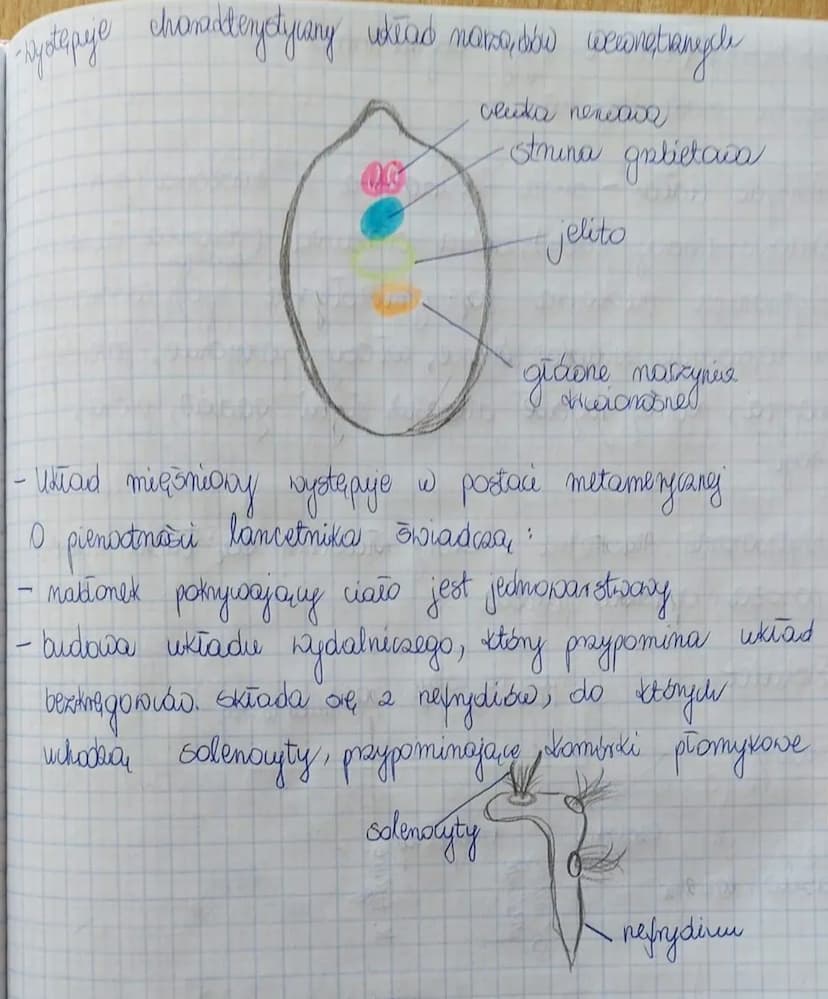 - występuje charakterystyczny układ narządów wewnętrznych
cewka nerwowa
struna grzbietowa
jelito
główne naczynia
krwionośne
- układ mięśniowy występuje w postaci metamerycznej
O pierwotności lancetnika świadczą:
- nabłonek pokrywający ciało jest jednowarstwowy
- budowa układu wydalniczego, który przypomina układ
bezkręgowców. Składa się z nefrydiów, do których
uchodzą solenocyty, przypominające komórki płomykowe
solenocyty
nefrydium